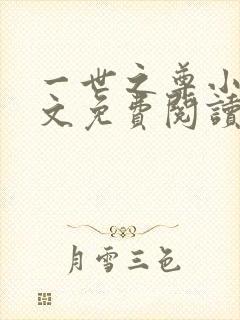 一世之尊小
文免費閱讀
月雪三色